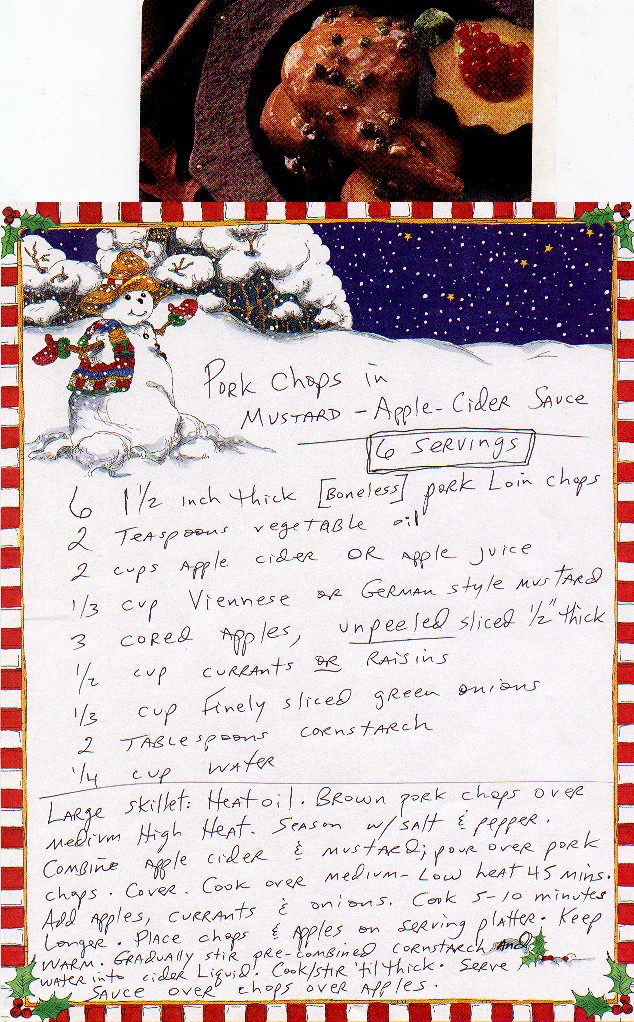 Pork Chops in
Mustard - Apple - Cider Sauce
6 servings
6 1 1/2 inch thick [Boneless] pork Loin chops
2 Teaspoons vegetable oil
2 cups Apple cider OR Apple juice
1/3 cup Viennese or German style mustard
3 cored Apples, unpeeled sliced 1/2" thick
1/2 cup currants or Raisins
1/3 cup Finely sliced green onions
2 Tablespoons cornstarch
1/4 cup water
Large skillet: Heat oil. Brown pork chops over
medium High Heat. Season w/ salt & pepper.
Combine apple cider & mustard; pour over pork
chops. Cover. Cook over medium-Low heat 45 mins.
Add apples, currants & onions. Cook 5-10 minutes
Longer. Place chops & apples on serving platter. Keep
warm. Gradually stir pre-combined cornstarch and
water into cider Liquid. Cook/stir 'til thick. Serve
Sauce over chops over apples.